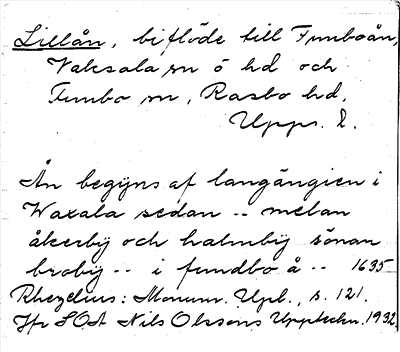 Lillån, biflöde till Funboån,
Vaksala sn o hd och
Funbo sn, Rasbo hd,
Upps. l.
Ån begyns af langängien i
Waxala sedan -- melan
åkerbÿ och halmbÿ sönan
brobÿ -- i fundbo å -- 1635
Rhezelius: Monum. Upl., s. 121.
Jfr SOA Nils Olssons Uppteckn. 1932.